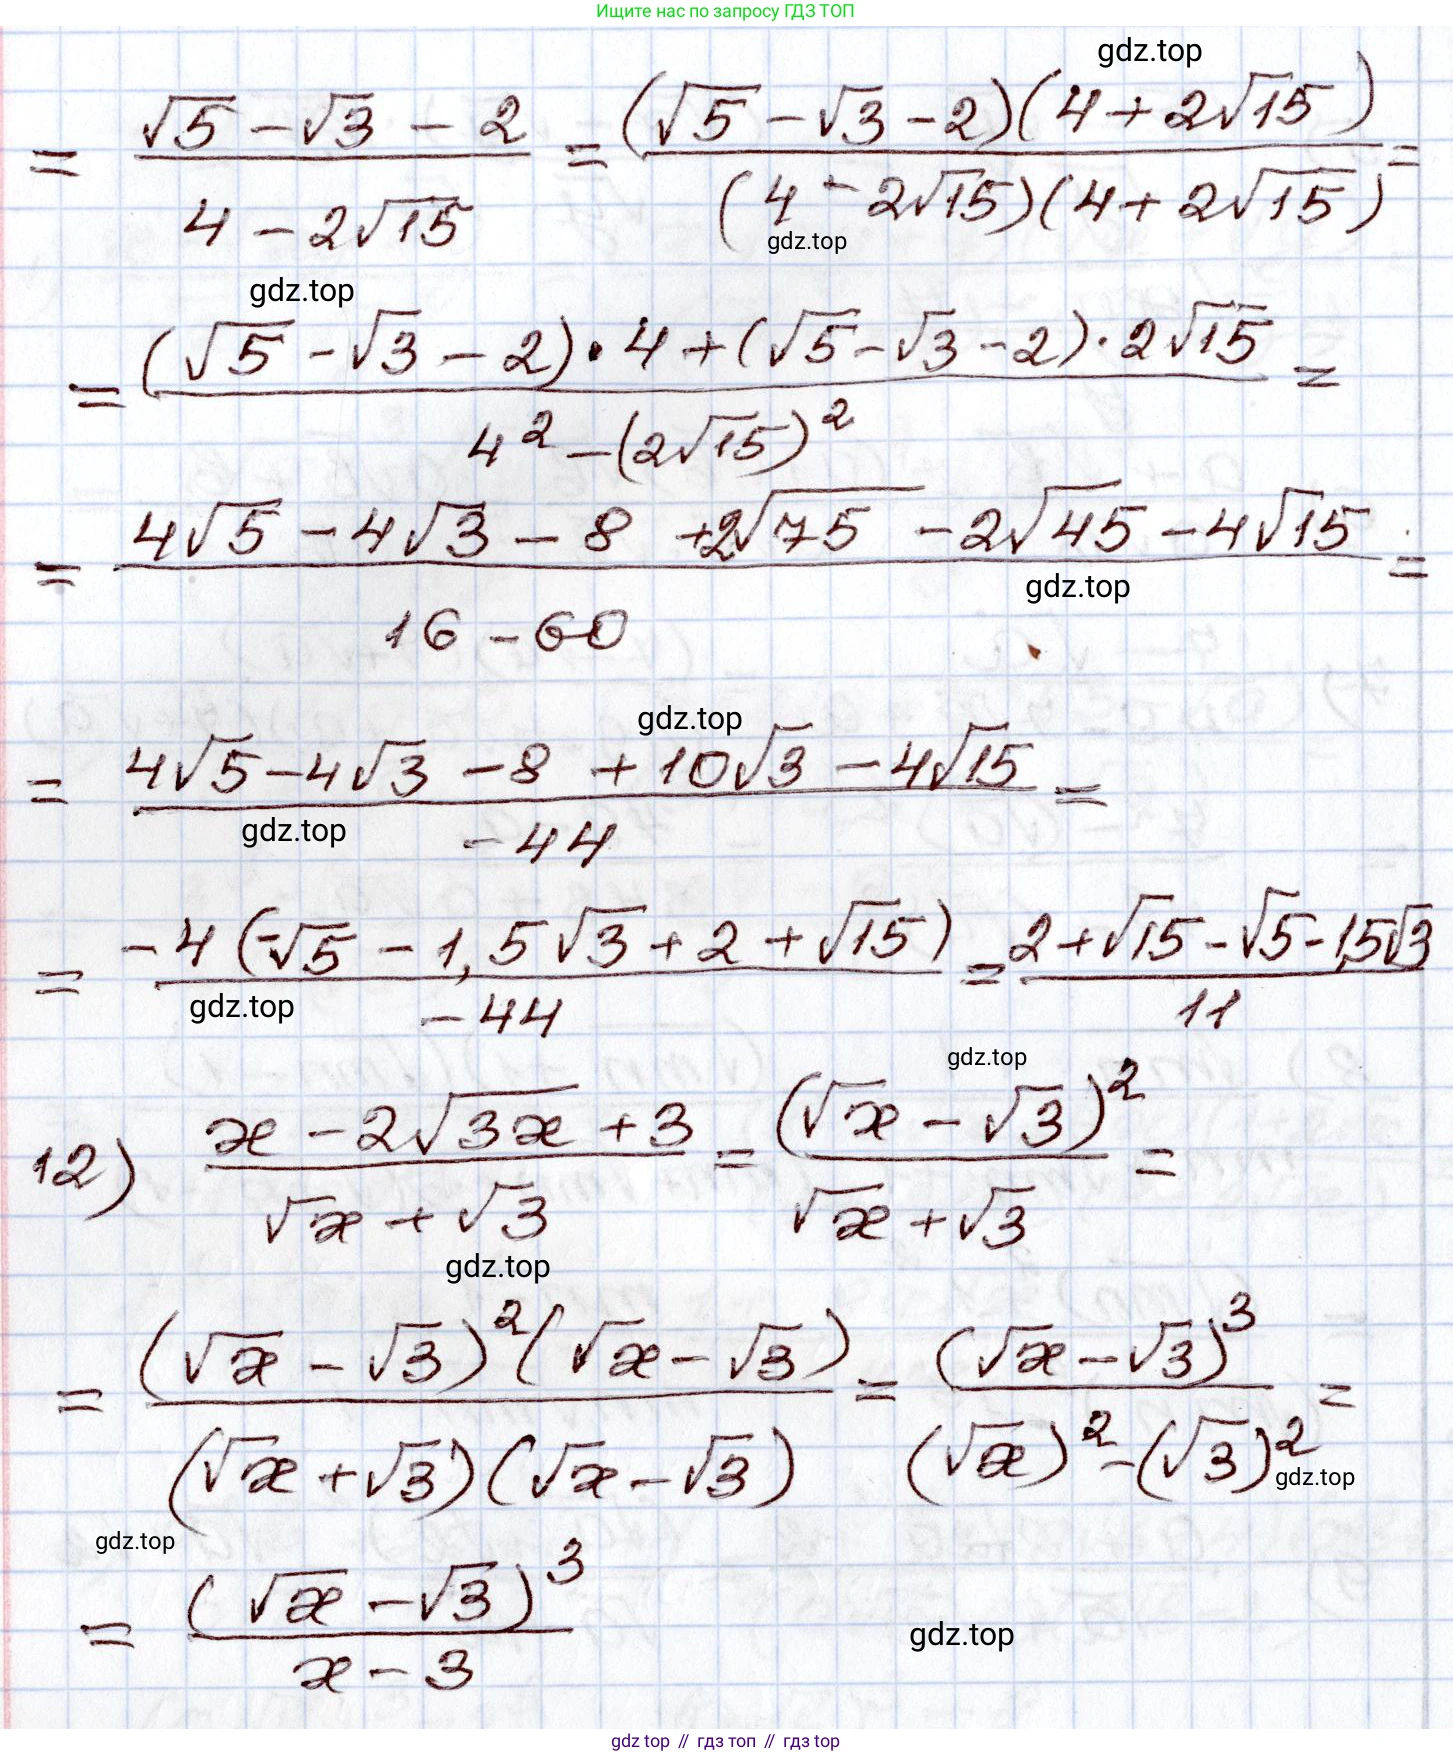 Ищите нас по запросу ГДЗ ТОП
gdz.top
= (√5 - √3 - 2)/(4 - 2√15) = ((√5 - √3 - 2)(4 + 2√15))/((4 - 2√15)(4 + 2√15)) =
gdz.top
gdz.top
= ((√5 - √3 - 2)·4 + (√5 - √3 - 2)·2√15)/(4² - (2√15)²) =
= (4√5 - 4√3 - 8 + 2√75 - 2√45 - 4√15)/(16 - 60) =
gdz.top
gdz.top
= (4√5 - 4√3 - 8 + 10√3 - 4√15)/(-44) =
gdz.top
= (-4(-√5 - 1,5√3 + 2 + √15))/(-44) = (2 + √15 - √5 - 1,5√3)/11
gdz.top
gdz.top
12) (x - 2√(3x) + 3)/(√x + √3) = (√x - √3)²/(√x + √3) =
gdz.top
= ((√x - √3)²(√x - √3))/((√x + √3)(√x - √3)) = (√x - √3)³/((√x)² - (√3)²) =
gdz.top
gdz.top
= (√x - √3)³/(x - 3)
gdz.top
gdz top // гдз топ // гдз top